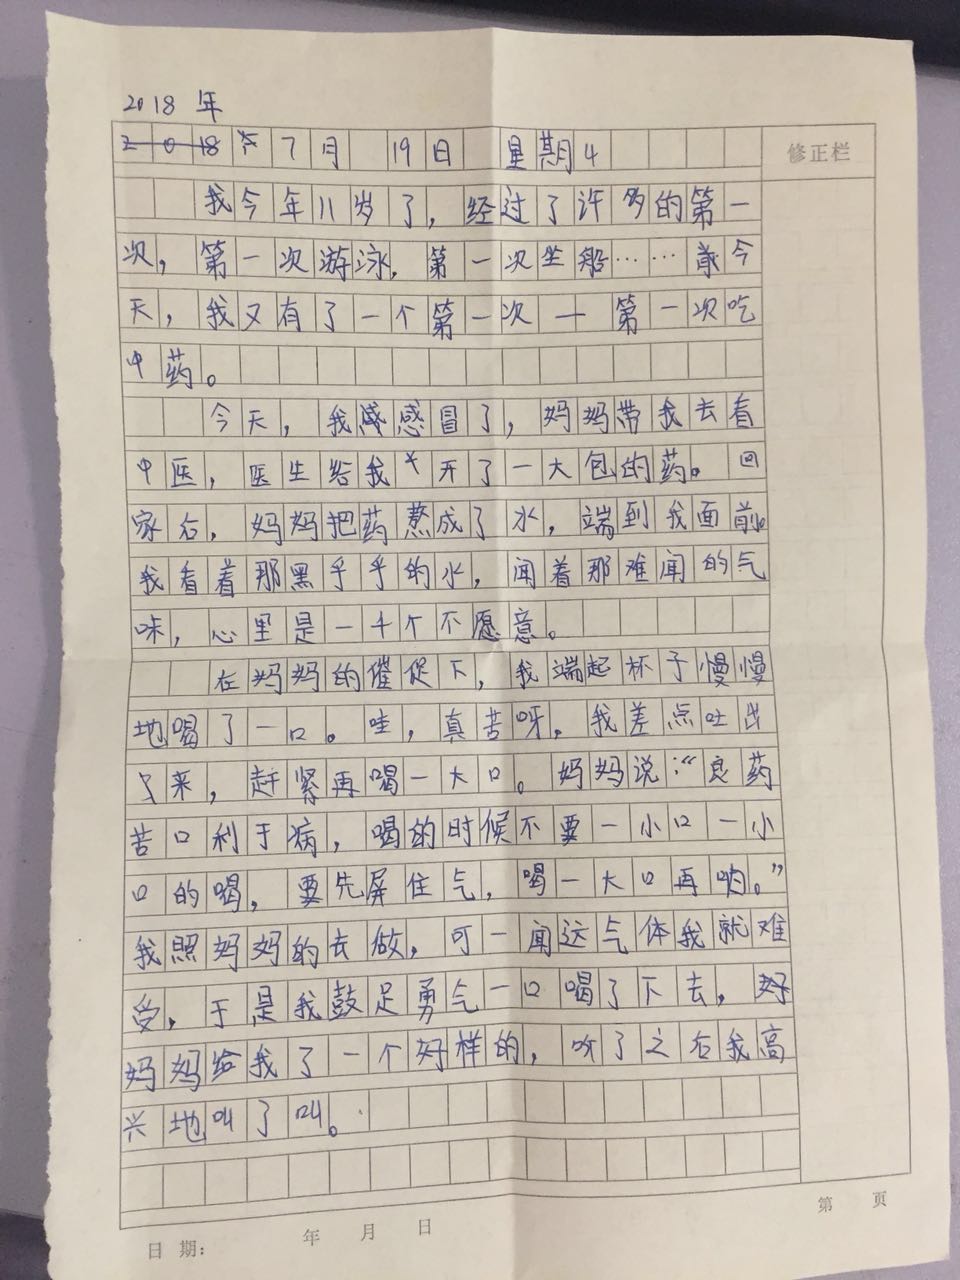 2018 年
2018年7月 19日 星期4
修正栏
我今年11岁了，经过了许多的第一
次，第一次游泳，第一次坐船……今
天，我又有了一个第一次—第一次吃
中药。
今天，我感冒了，妈妈带我去看
中医，医生给我开了一大包的药。回
家后，妈妈把药熬成了水，端到我面前。
我看着那黑乎乎的水，闻着那难闻的气
味，心里是一千个不愿意。
在妈妈的催促下，我端起杯子慢慢
地喝了一口。哇，真苦呀，我差点吐出
来，赶紧再喝一大口。妈妈说：“良药
苦口利于病，喝的时候不要一小口一小
口的喝，要先屏住气，喝一大口再呐。”
我照妈妈的去做，可一闻这气体我就难
受，于是我鼓足勇气一口喝了下去，
妈妈给我了一个好样的，听了之后我高
兴地叫了叫。
第 页
日 期： 年 月 日